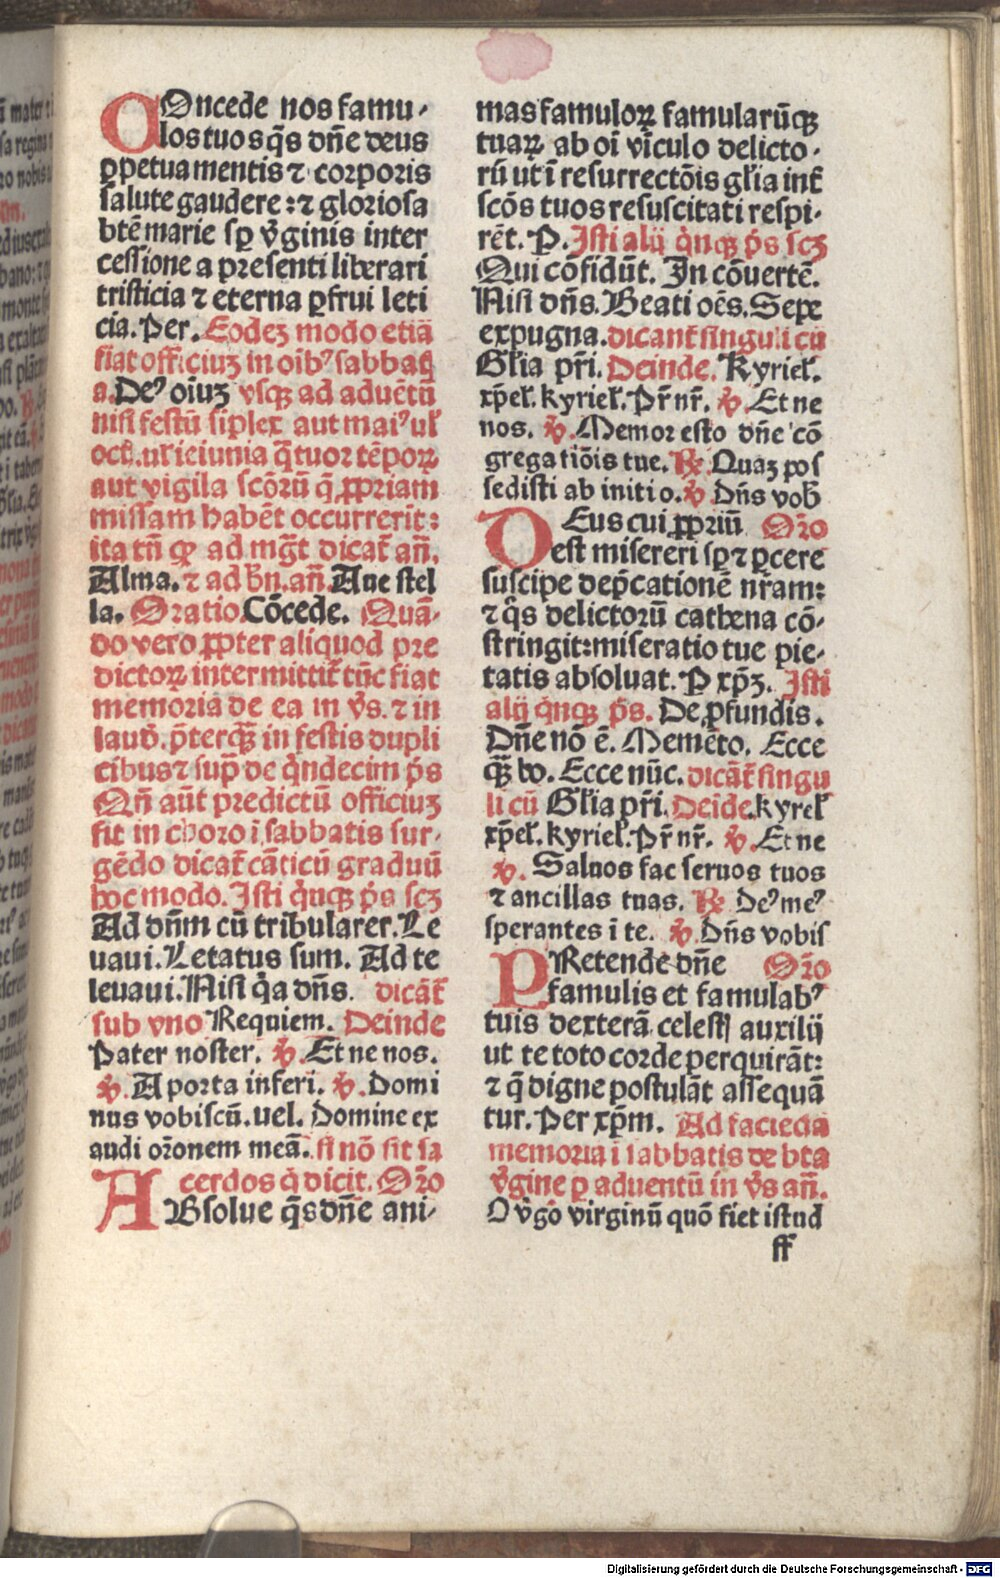 COncede nos famu-
los tuos q̃s dñe deus
ꝑpetua mentis ⁊ corporis
salute gaudere: ⁊ gloriosa
btẽ marie sp̱ v̓ginis inter
cessione a presenti liberari
tristicia ⁊ eterna ꝑfrui leti
cia. Per. Eodeꝫ modo etiã
fiat officiuꝫ in oĩbꝰ sabbat
a. Deꝰ oiũꝫ vsqꝫ ad aduẽtũ
nisi festũ siplex aut maiꝰ ul̕
oct̕. ul̕ ieiunia q̃tuor tẽporꝝ
aut vigila scõrũ q̃ ꝓpriam
missam habẽt occurrerit:
ita tñ ꝙ ad mg̃t dicat̕ añ.
Alma. ⁊ ad bñ. añ. Aue stel
la. Oratio. Cõcede. Quã-
do vero ꝓpter aliquod pre
dictoꝝ intermittit̕ tũc fiat
memoria de ea in v̓s. ⁊ in
laud̕. p̃terqꝫ̃ in festis dupli
cibus ⁊ sup̱ de q̓ndecim p̓s
Qñ aũt predictũ officiuꝫ
fit in choro ĩ sabbatis sur-
gẽdo dicat̕ cãticũ graduũ
hoc modo. Isti q̓nqꝫ p̓s scꝫ
Ad dñm cũ tribularer. Le
uaui. Letatus sum. Ad te
leuaui. Nisi q̓a dñs. dicãt̕
sub vno Requiem. Deinde
Pater noster. ℣. Et ne nos.
℣. A porta inferi. ℣. Domi
nus vobiscũ. uel. Domine ex
audi orõnem meã. si nõ sit sa
cerdos q̓ dicit. Orõ
ABsolue q̃s dñe ani-
mas famulorꝝ famularũqꝫ
tuarꝝ ab oĩ vĩculo delicto-
rũ ut ĩ resurrectõis gl̕ia int̕
scõs tuos resuscitati respi-
rẽt. P. Isti alij q̓nqꝫ p̓s scꝫ
Qui cõfidũt. In cõuertẽ.
Nisi dñs. Beati oẽs. Sepe
expugna. dicant̕ singuli cũ
Gl̕ia pr̃i. Deinde. Kyriel̕.
xp̃el̕. kyriel̕. Pr̃ nr̃. ℣. Et ne
nos. ℣. Memor esto dñe cõ
gregatiõis tue. ℟. Quaꝫ pos
sedisti ab initio. ℣. Dñs vob̕
DEus cui ꝓpriũ Orõ
est misereri sp̱ ⁊ ꝑcere
suscipe dep̃cationẽ nr̃am:
⁊ q̃s delictorũ cathena cõ-
stringit: miseratio tue pie-
tatis absoluat. P xp̃ꝫ. Isti
alij q̓nqꝫ p̓s. De ꝓfundis.
Dñe nõ ẽ. Memẽto. Ecce
qꝫ̃ bo. Ecce nũc. dicãt̕ singu
li cũ Gl̕ia pr̃i. Deĩde. kyrel̕
xp̃el̕. kyriel̕. Pr̃ nr̃. ℣. Et ne
℣. Saluos fac seruos tuos
⁊ ancillas tuas. ℟. Deꝰ meꝰ
sperantes ĩ te. ℣. Dñs vobis
PRetende dñe Orõ
famulis et famulabꝰ
tuis dexterã celestꝭ auxilij
ut te toto corde perquirãt:
⁊ q̃ digne postulãt assequã
tur. Per xp̃m. Ad facieda
memoria ĩ sabbatis de bta
v̓gine ꝑ aduentũ in v̓s añ.
O v̓go virginũ quõ fiet istud
ff
Digitalisierung gefördert durch die Deutsche Forschungsgemeinschaft - DFG